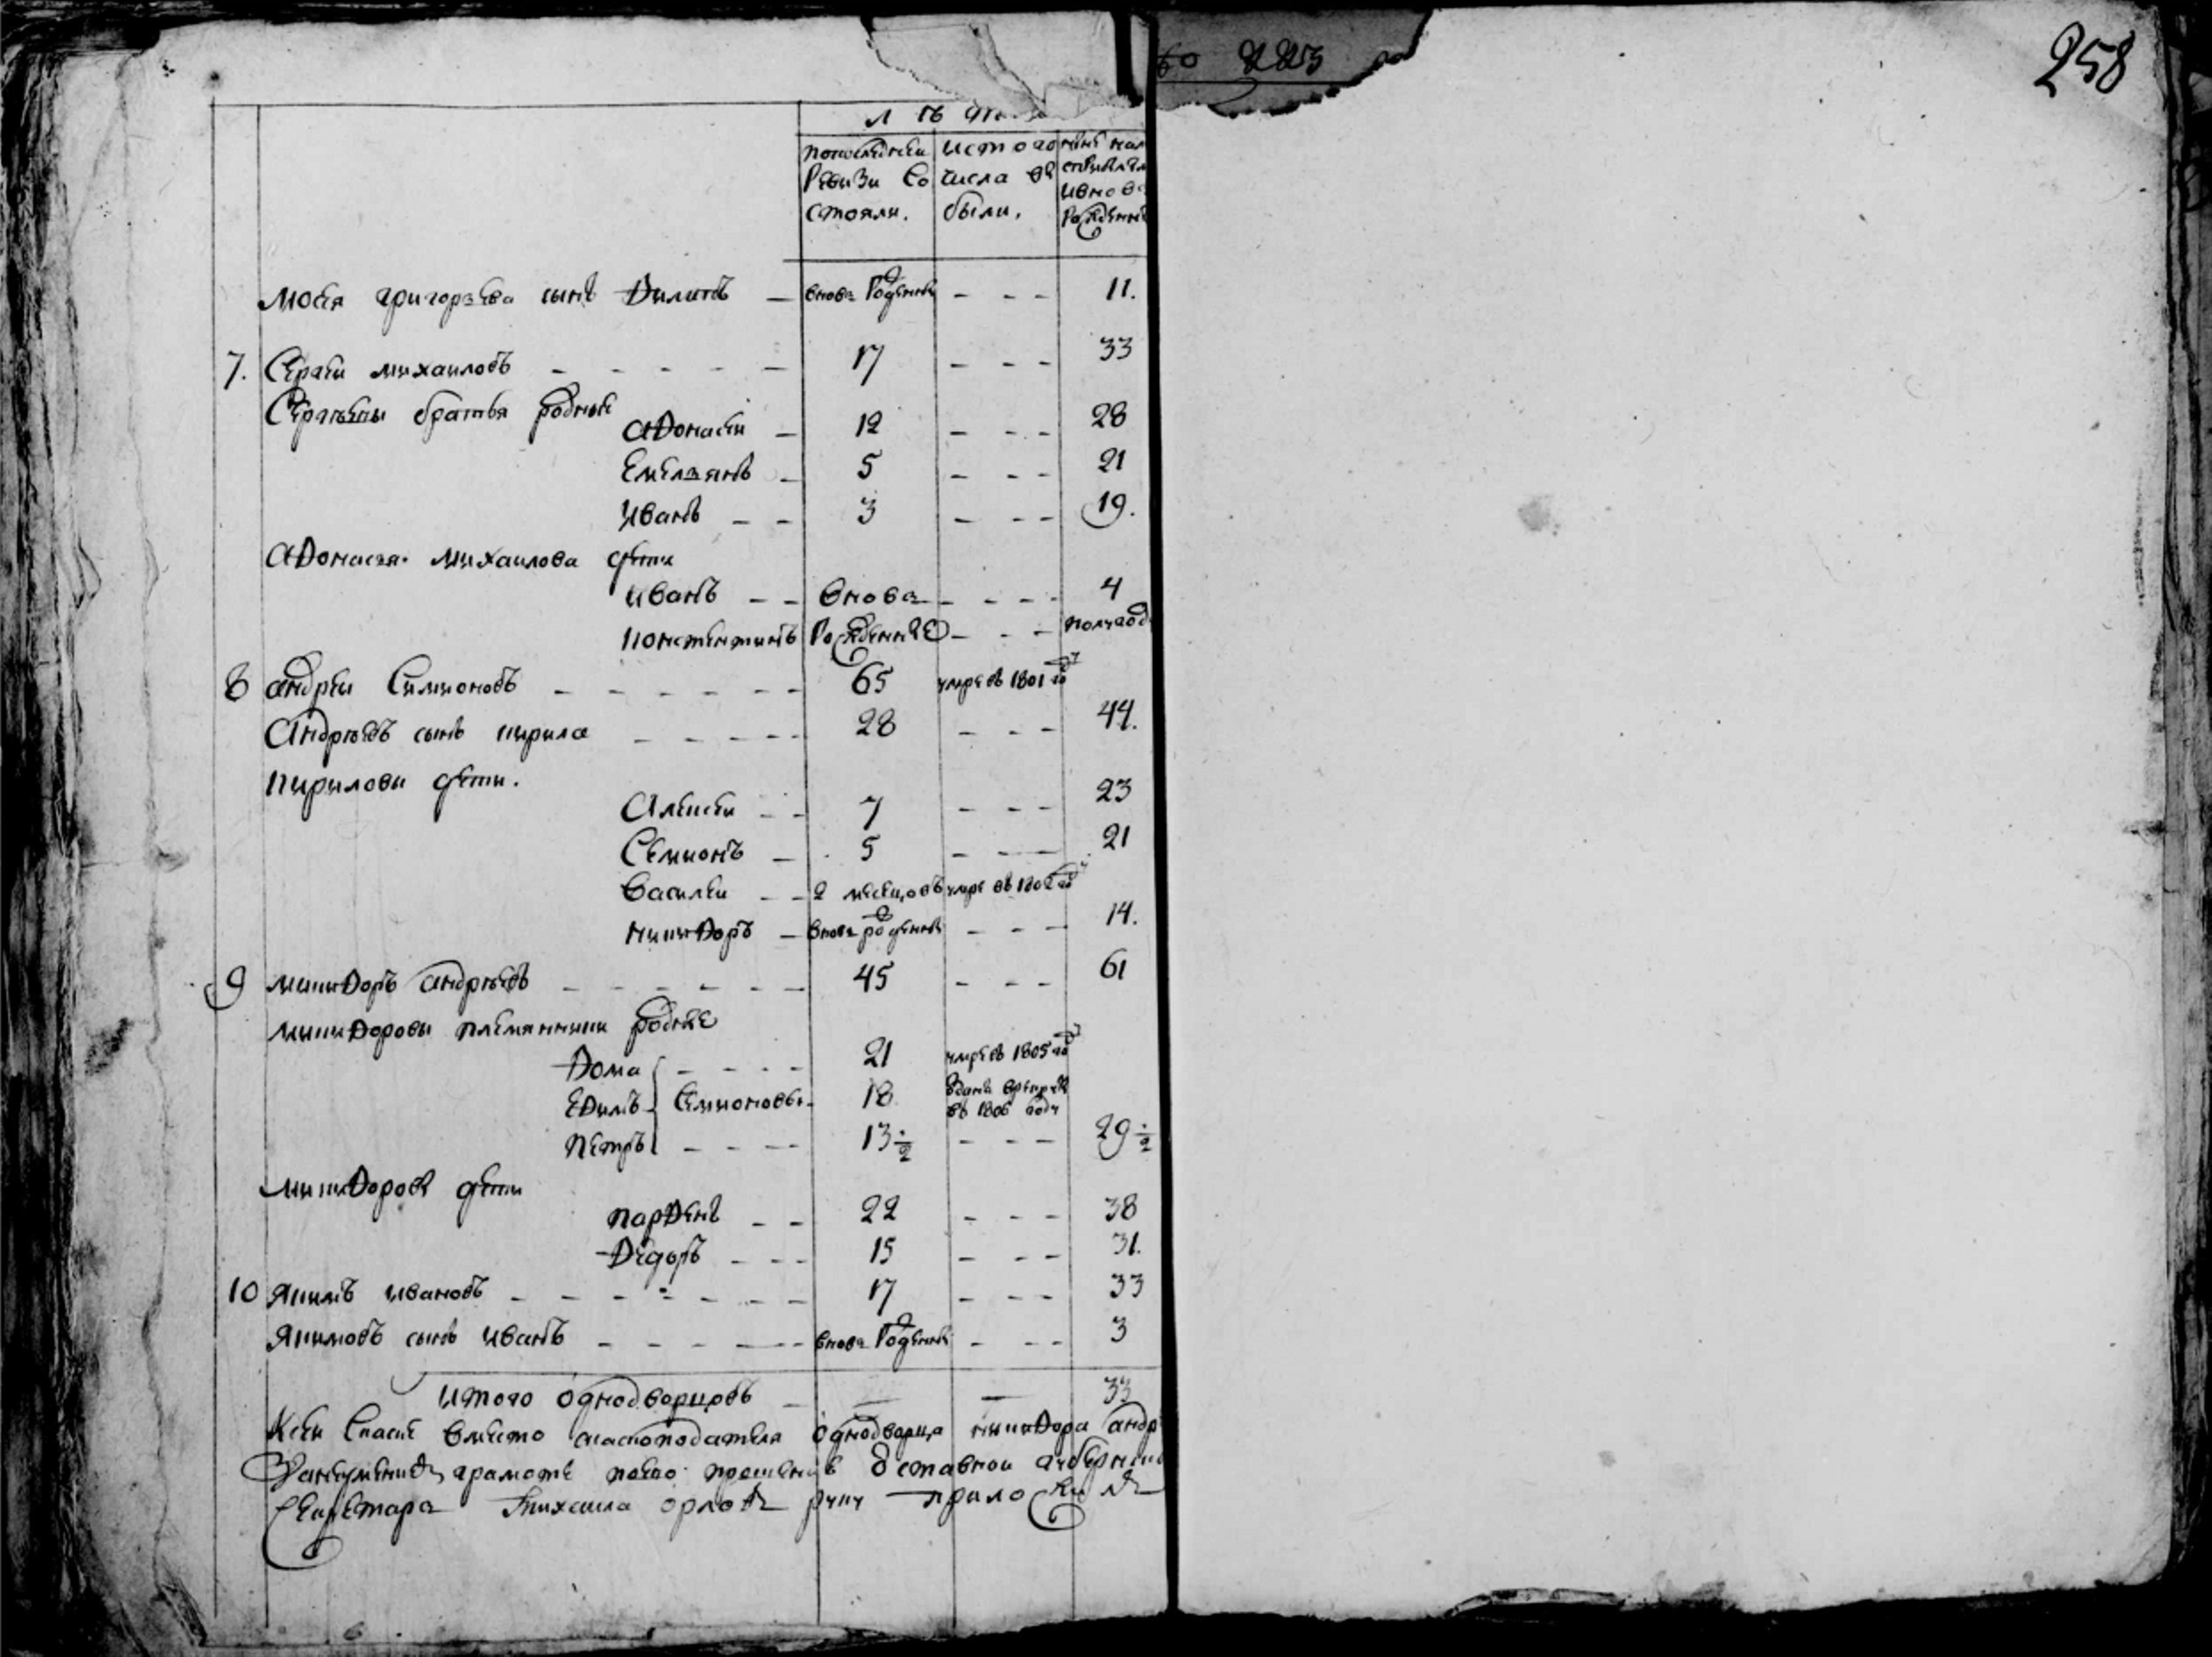 258
225
Лѣт
попоследнеи ревизи состояли.
истого числа выбыли.
ныне налицо стприбылыми и вновь рожденны
Мосея григорьева сынъ Филипъ — вновь рожденны — — — 11.
7. Сергеи михаиловъ — 17 — — — 33
Сергеевы братья родные
афонасеи — 12 — — — 28
Емельянъ — 5 — — — 21
Иванъ — — 3 — — — 19.
афонасья михаилова дети
иванъ — — вновь — — — 4
констентинъ рожденные — — — полгода
8 андреи Симионовъ — 65 умре въ 1801 годе
Андреевъ сынъ кирила — 28 — — — 44.
кириловы дети.
Алексеи — — 7 — — — 23
Семионъ — 5 — — — 21
василеи — — 2 месецовъ умре въ 1802 годе
никифоръ — вновь рожденны — — — 14.
9 никифоръ андреевъ — 45 — — — 61
никифоровы племянники родные
Фома — 21 умре въ 1805 годе
Ефимъ Семионовы 18 Зданъ врекруты въ 1806 году
Петръ — 13 ½ — — — 29 ½
никифоровы дети
парфенъ — — 22 — — — 38
Федоръ — — — 15 — — — 31.
10 якимъ ивановъ — 17 — — — 33
якимовъ сынъ иванъ — вновь рожденны — — — 3
итого однодворцовъ — — 33
Ксеи скаске вместо скаскоподателя однодворца никифора андр
занеуменiемъ грамоте поево прошению отставнои губернско
секретарь михаила орловъ руку приложилъ